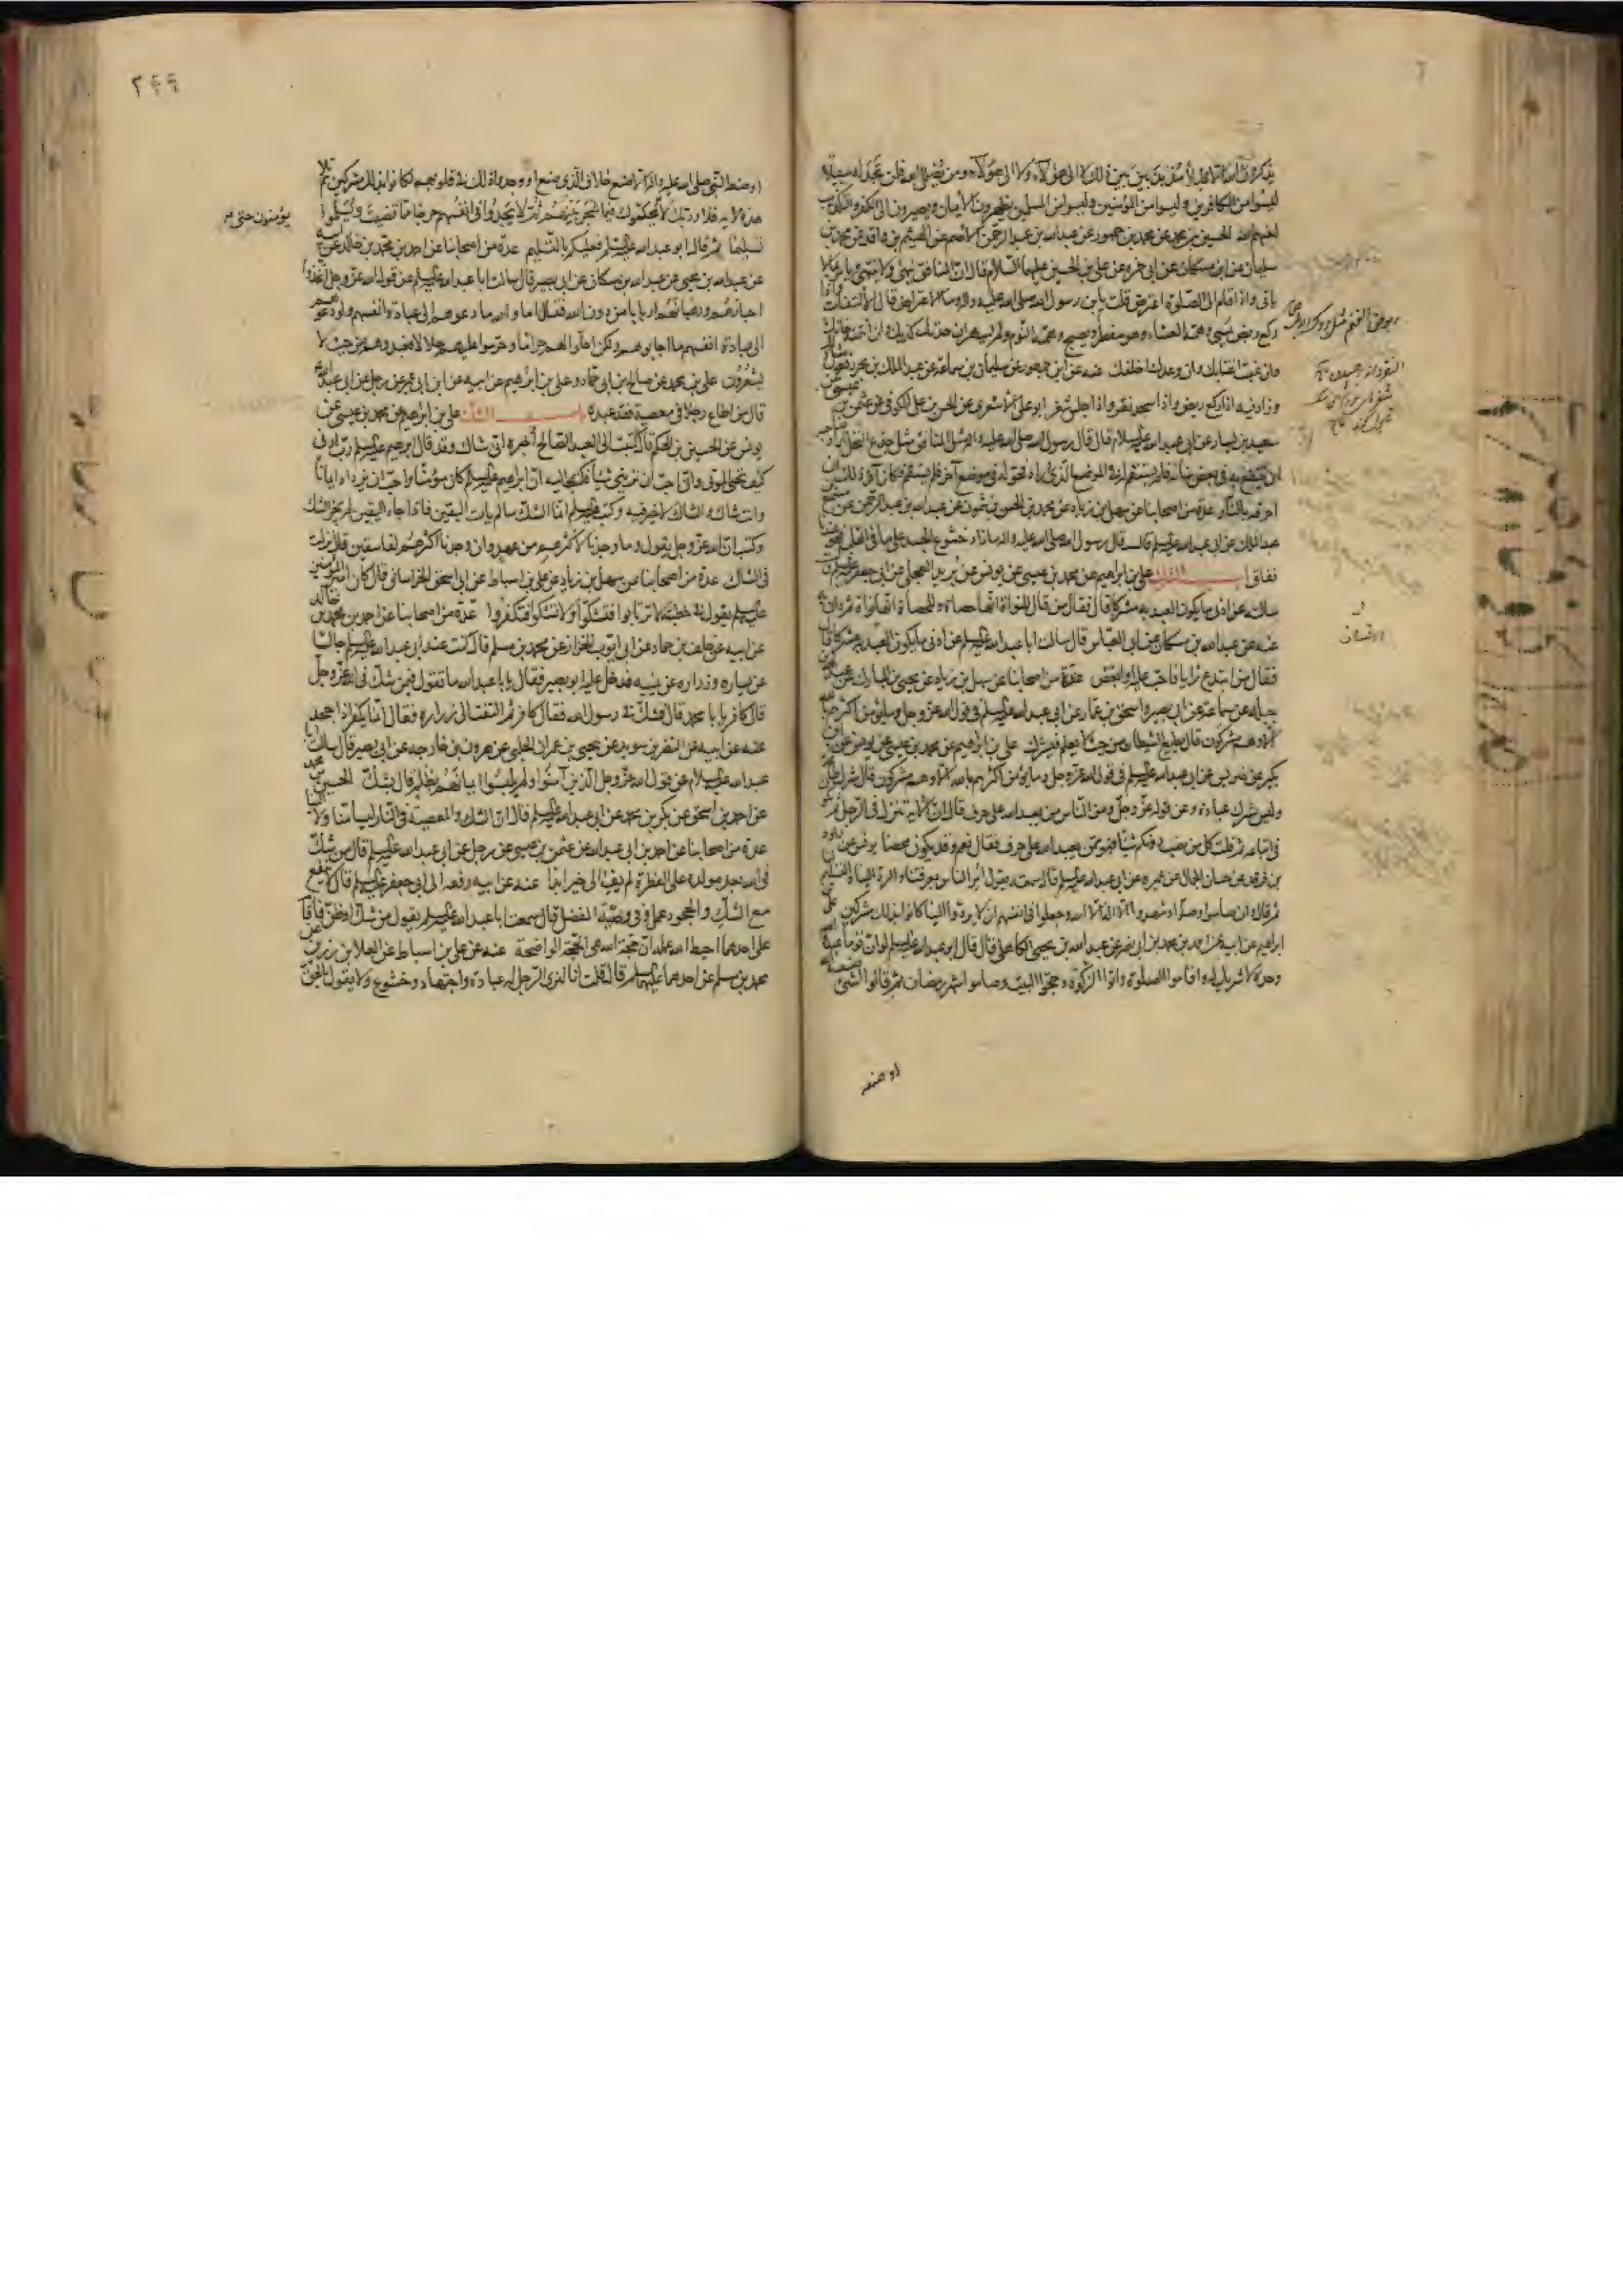 يذكرون الله الا قليلا مذبذبين بين ذلك لا الى هؤلاء ولا الى هؤلاء ومن يضلل الله فلن تجد له سبيلا
ليسوا من الكافرين وليسوا من المؤمنين وليسوا من المسلمين يظهرون الايمان ويصيرون الى الكفر والتكذيب
لعنهم الله الحسين بن محمد عن محمد بن جمهور عن عبدالله بن عبد الرحمن الاصم عن الهيثم بن واقد عن محمد بن
سليمان عن ابن مسكان عن ابي حمزه عن علي بن الحسين عليهما السلام قال ان المنافق ينهى ولا ينتهي ويامر بما لا
ياتي واذا قام الى الصلوة اعترض قلت يابن رسول الله صلى الله عليه واله وما الاعتراض قال الالتفات واذا
ركع ربض يمسي وهمه العشاء وهو مفطر ويصبح وهمه النوم ولم يسهر ان حدثك كذبك وان ائتمنته خانك
وان غبت اغتابك وان وعدك اخلفك عنه عن ابن جمهور عن سليمان بن سماعة عن عبد الملك بن بحر رفعه مثل
وزاد فيه اذا ركع ربض واذا سجد نقر واذا جلس شغر ابو علي الاشعري عن الحسن بن علي الكوفي عن عثمن بن عيسى عن
سعيد بن يسار عن ابي عبد الله عليه السلام قال قال رسول الله صلى الله عليه واله مثل المنافق مثل جذع النخل اراد صاحبه
ان ينتفع به في بعض بنائه فلم يستقم له في الموضع الذي اراد فحوله في موضع آخر فلم يستقم فكان آخر ذلك ان
احرقه بالنار عدة من اصحابنا عن سهل بن زياد عن محمد بن الحسن بن شمون عن عبدالله بن عبد الرحمن عن مسمع بن
عبد الملك عن ابي عبد الله عليه السلام قال قال رسول الله صلى الله عليه واله ما زاد خشوع الجسد على ما في القلب فهو عندنا
نفاق باب الشرك علي بن ابراهيم عن محمد بن عيسى عن يونس عن بريد العجلي عن ابي جعفر عليه السلام قال
سالته عن ادنى ما يكون العبد به مشركا قال فقال من قال للنواة انها حصاة وللحصاة انها نواة ثم دان به
عنه عن عبدالله بن مسكان عن ابي العباس قال سالت ابا عبدالله عليه السلام عن ادنى ما يكون العبد به مشركا قال
فقال من ابتدع رايا فاحب عليه او ابغض عدة من اصحابنا عن سهل بن زياد عن يحيى بن المبارك عن عبدالله بن
جبلة عن سماعة عن ابي بصير واسحق بن عمار عن ابي عبدالله عليه السلام في قول الله عز وجل وما يؤمن اكثرهم بالله
الا وهم مشركون قال يطيع الشيطان من حيث لا يعلم فيشرك علي بن ابراهيم عن محمد بن عيسى عن يونس عن ابن
بكير عن ضريس عن ابي عبدالله عليه السلام في قول الله عز وجل وما يؤمن اكثرهم بالله الا وهم مشركون قال شرك طاعة
وليس شرك عبادة وعن قوله عز وجل ومن الناس من يعبد الله على حرف قال ان الاية تنزل في الرجل ثم تكون
في اتباعه ثم قلت كل من نصب دونكم شيئا فهو ممن يعبد الله على حرف فقال نعم وقد يكون محضا يونس عن داود
بن فرقد عن حسان الجمال عن عميره عن ابي عبدالله عليه السلام قال سمعته يقول امر الناس بمعرفتنا والرد الينا والتسليم لنا
ثم قال وان صاموا وصلوا وشهدوا ان لا اله الا الله وجعلوا في انفسهم ان لا يردوا الينا كانوا بذلك مشركين علي بن
ابراهيم عن ابيه عن احمد بن محمد بن ابي نصر عن عبدالله بن يحيى الكاهلي قال قال ابو عبدالله عليه السلام لو ان قوما عبدوا الله
وحده لا شريك له واقاموا الصلوة واتوا الزكوة وحجوا البيت وصاموا شهر رمضان ثم قالوا لشئ صنعه الله
او صنعه
٢٤٩
او صنعه النبي صلى الله عليه واله الا صنع خلاف الذي صنع او وجدوا ذلك في قلوبهم لكانوا بذلك مشركين ثم تلا
هذه الاية فلا وربك لا يحكموك فيما شجر بينهم ثم لا يجدوا في انفسهم حرجا مما قضيت ويسلموا
يؤمنون حتى
تسليما ثم قال ابو عبدالله عليه السلام فعليكم بالتسليم عدة من اصحابنا عن احمد بن محمد بن خالد عن ابيه
عن عبدالله بن يحيى عن عبدالله بن مسكان عن ابي بصير قال سالت ابا عبدالله عليه السلام عن قول الله عز وجل اتخذوا
احبارهم ورهبانهم اربابا من دون الله فقال اما والله ما دعوهم الى عبادة انفسهم ولو دعوهم
الى عبادة انفسهم ما اجابوهم ولكن احلوا لهم حراما وحرموا عليهم حلالا فعبدوهم من حيث لا
يشعرون علي بن محمد عن صالح بن ابي حماد وعلي بن ابراهيم عن ابيه عن ابن ابي عمير عن رجل عن ابي عبدالله
قال من اطاع رجلا في معصية فقد عبده باب الشك علي بن ابراهيم عن محمد بن عيسى عن
يونس عن الحسين بن الحكم قال كتبت الى العبد الصالح اخبره اني شاك وقد قال ابرهيم عليه السلام رب ارني
كيف تحيي الموتى واني احب ان تريني شيئا فكتب اليه ان ابراهيم عليه السلام كان مؤمنا واحب ان يزداد ايمانا
وانت شاك والشاك لا خير فيه وكتب عليه السلام انما الشك ما لم يات اليقين فاذا جاء اليقين لم يجز الشك
وكتب ان الله عز وجل يقول وما وجدنا لاكثرهم من عهد وان وجدنا اكثرهم لفاسقين قال نزلت
في الشاك عدة من اصحابنا عن سهل بن زياد عن علي بن اسباط عن ابي اسحق الخراساني قال كان امير المؤمنين
عليه السلام يقول في خطبته لا ترتابوا فتشكوا ولا تشكوا فتكفروا عدة من اصحابنا عن احمد بن محمد بن خالد
عن ابيه عن خلف بن حماد عن ابي ايوب الخزاز عن محمد بن مسلم قال كنت عند ابي عبدالله عليه السلام جالسا
عن يساره وزراره عن يمينه فدخل عليه ابو بصير فقال يا ابا عبدالله ما تقول فيمن شك في الله عز وجل
قال كافر يا با محمد قال فشك في رسول الله فقال كافر ثم التفت الى زراره فقال انما يكفر اذا جحد
عنه عن ابيه عن النضر بن سويد عن يحيى بن عمران الحلبي عن هرون بن خارجه عن ابي بصير قال سالت ابا
عبدالله عليه السلام عن قول الله عز وجل الذين آمنوا ولم يلبسوا ايمانهم بظلم قال بشك الحسين بن محمد
عن احمد بن اسحق عن بكر بن محمد عن ابي عبدالله عليه السلام قال ان الشك والمعصية في النار ليسا منا ولا الينا
عدة من اصحابنا عن احمد بن ابي عبدالله عن عثمن بن عيسى عن رجل عن ابي عبدالله عليه السلام قال من شك
في الله بعد مولده على الفطرة لم يفئ الى خير ابدا عنه عن ابيه رفعه الى ابي جعفر عليه السلام قال لا ينفع
مع الشك والجحود عمل وفي وصية المفضل قال سمعت ابا عبدالله عليه السلام يقول من شك او ظن فاقام
على احدهما احبط الله عمله ان حجة الله هي الحجة الواضحة عنه عن علي بن اسباط عن العلا بن رزين عن
محمد بن مسلم عن احدهما عليهما السلام قال قلت انا لنرى الرجل له عبادة واجتهاد وخشوع ولا يقول بالحق